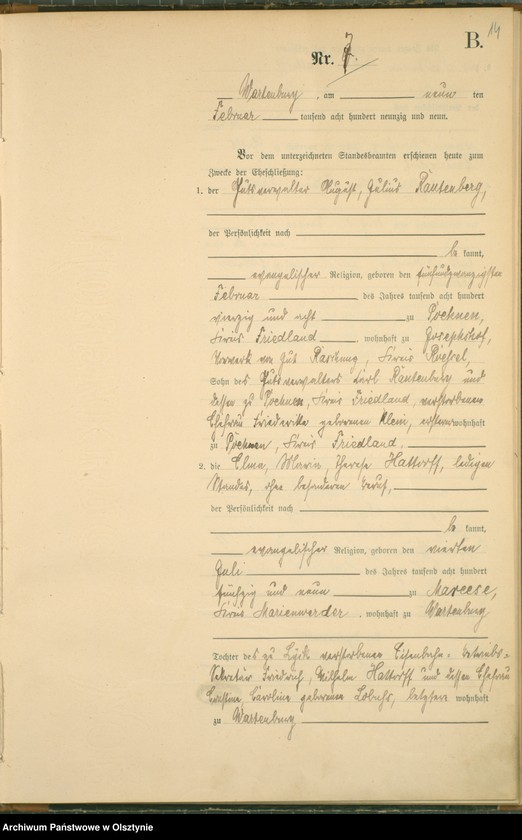 14
B.
Nr. 7.
Wartenburg, am neun ten
Februar tausend acht hundert neunzig und neun.
Vor dem unterzeichneten Standesbeamten erschienen heute zum
Zwecke der Eheschließung:
1. der Gutsverwalter August, Julius Rautenberg,
der Persönlichkeit nach
be kannt,
evangelischer Religion, geboren den fünfundzwanzigsten
Februar des Jahres tausend acht hundert
vierzig und acht zu Pöhnen,
Kreis Friedland, wohnhaft zu Josephshof,
Vorwerk von Gut, Kreis Rössel,
Sohn des Gutsverwalters Carl Rautenberg und
dessen zu Pöhnen, Kreis Friedland, verstorbenen
Ehefrau Friederike geborenen Klein, ersterer wohnhaft
zu Pöhnen, Kreis Friedland.
2. die Elma, Maria, Therese Hattorff, ledigen
Standes, ohne besonderen Beruf,
der Persönlichkeit nach
be kannt,
evangelischer Religion, geboren den vierten
Juli des Jahres tausend acht hundert
fünfzig und neun zu Mareese,
Kreis Marienwerder, wohnhaft zu Wartenburg
Tochter des zu Lyck verstorbenen Eisenbahn-Betriebs-
Sekretär Friedrich, Wilhelm Hattorff und dessen Ehefrau
Caroline geborene, letztere wohnhaft
zu Wartenburg
Archiwum Państwowe w Olsztynie